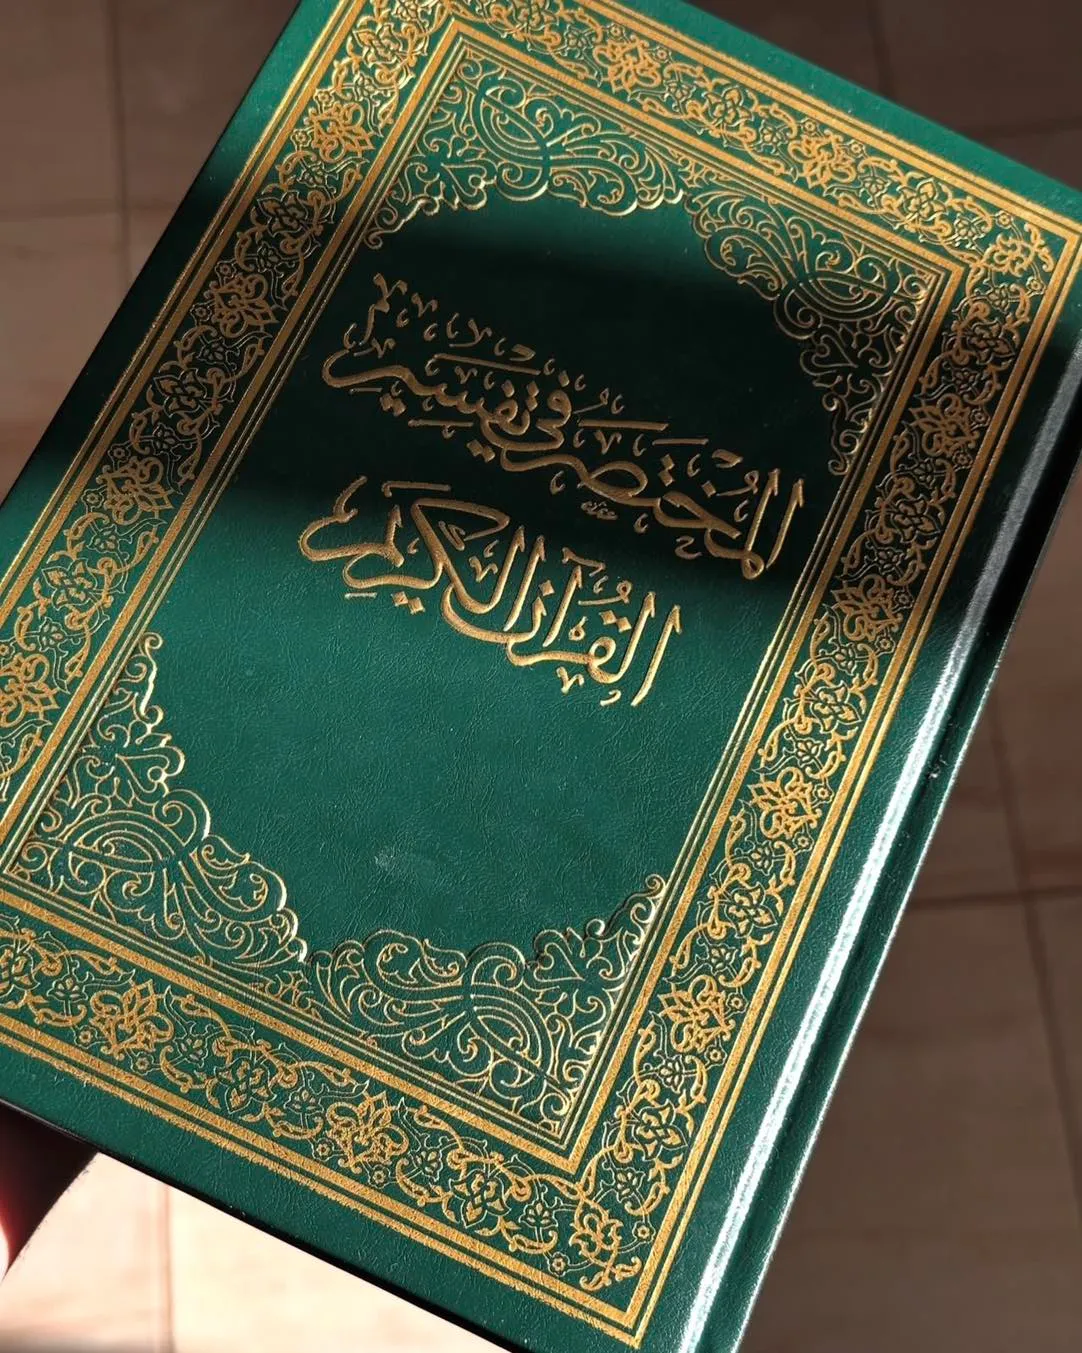 المُختصر في تفسير
القُرآن الكريم